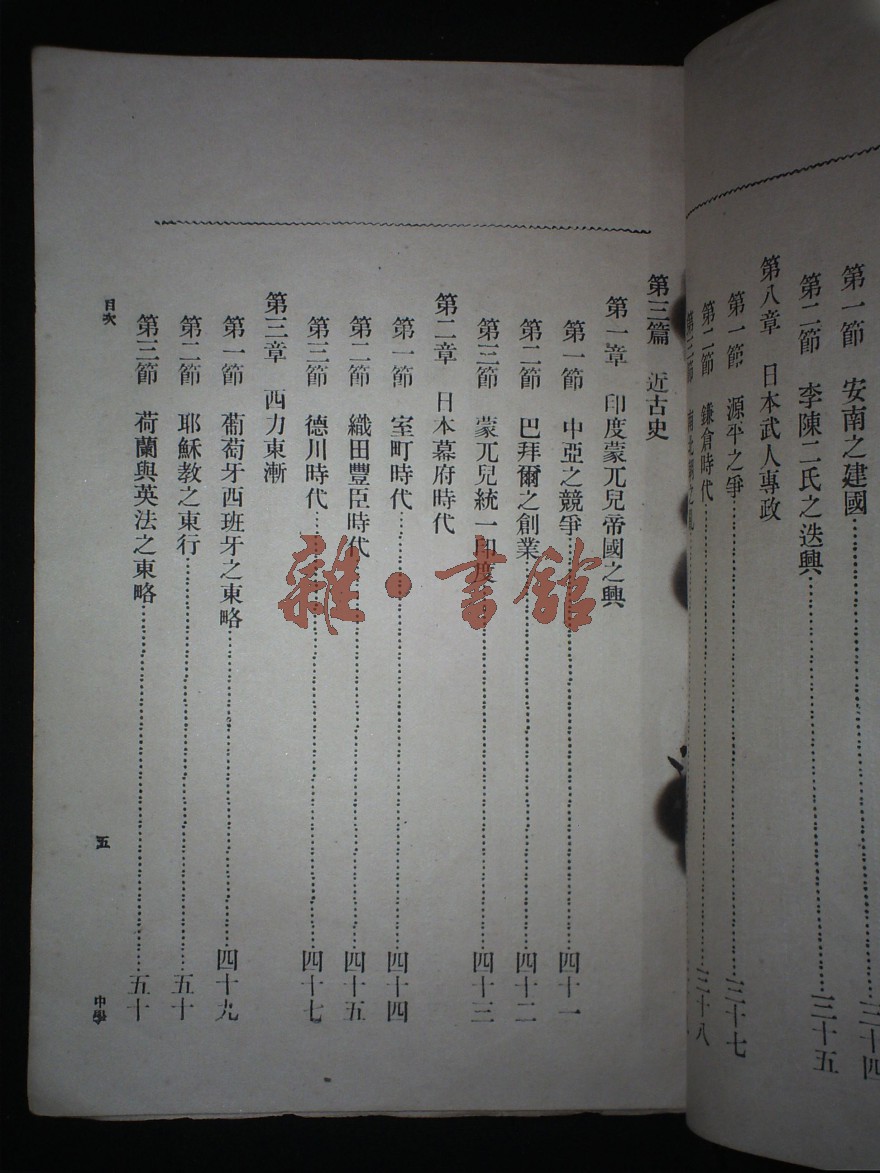 第一節 安南之建國 三十四
第二節 李陳二氏之迭興 三十五
第八章 日本武人專政
第一節 源平之爭 三十七
第二節 鎌倉時代 三十八
第三篇 近古史
第一章 印度蒙兀兒帝國之興
第一節 中亞之競爭 四十一
第二節 巴拜爾之創業 四十二
第三節 蒙兀兒統一印度 四十三
第二章 日本幕府時代
第一節 室町時代 四十四
第二節 織田豐臣時代 四十五
第三節 德川時代 四十七
第三章 西力東漸
第一節 葡萄牙西班牙之東略 四十九
第二節 耶穌教之東行 五十
第三節 荷蘭與英法之東略 五十
目次
五
中學
雜·書館